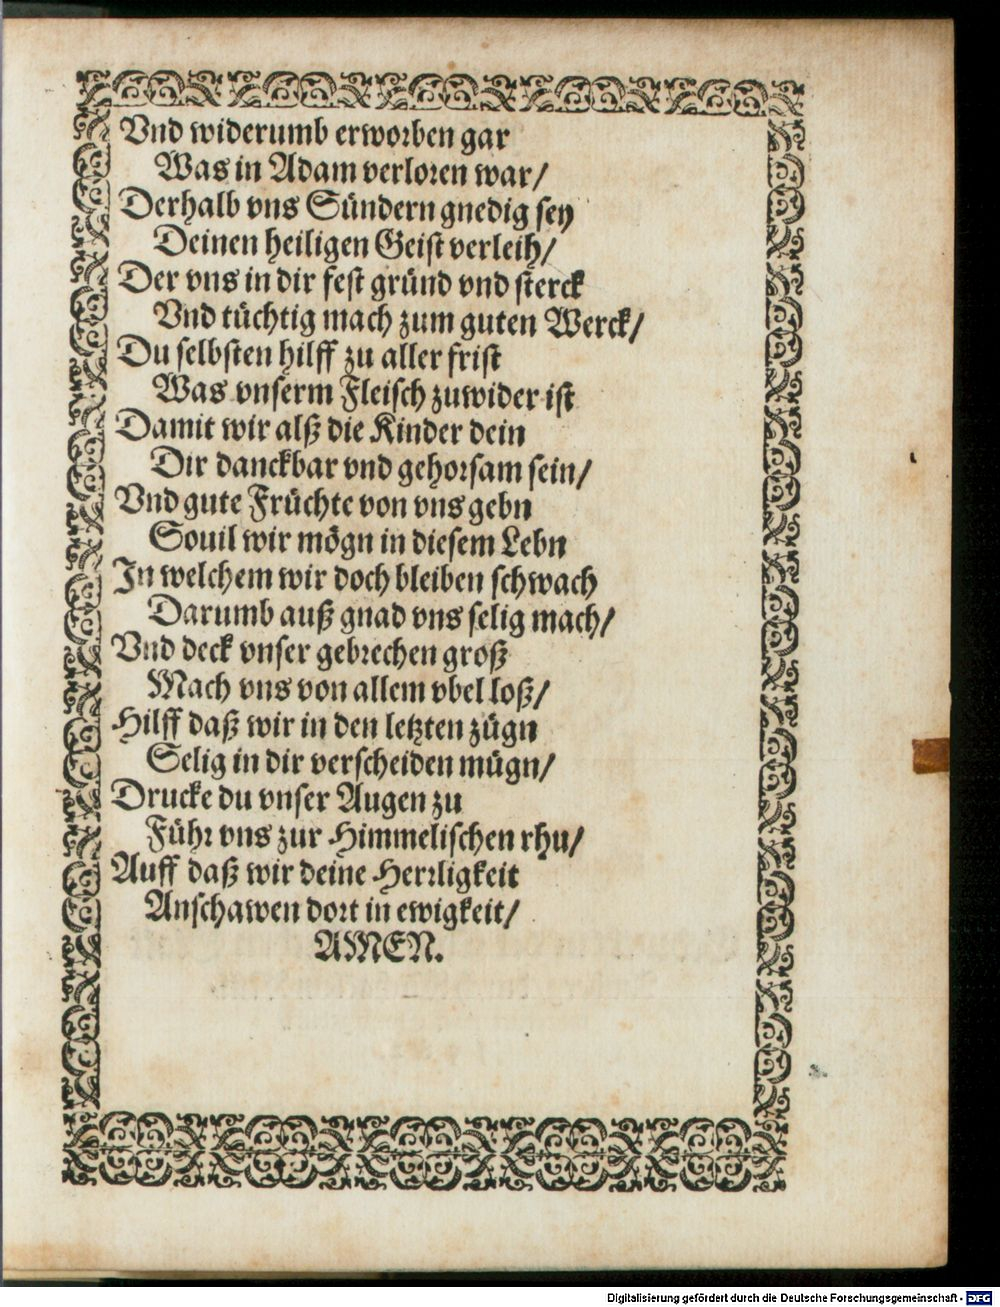 Vnd widerumb erworben gar
Was in Adam verloren war/
Derhalb vns Sündern gnedig sey
Deinen heiligen Geist verleih/
Der vns in dir fest gründ vnd sterck
Vnd tüchtig mach zum guten Werck/
Du selbsten hilff zu aller frist
Was vnserm Fleisch zuwider ist
Damit wir alß die Kinder dein
Dir danckbar vnd gehorsam sein/
Vnd gute Früchte von vns gebn
Souil wir mögn in diesem Lebn
In welchem wir doch bleiben schwach
Darumb auß gnad vns selig mach/
Vnd deck vnser gebrechen groß
Mach vns von allem vbel loß/
Hilff daß wir in den letzten zügn
Selig in dir verscheiden mügn/
Drucke du vnser Augen zu
Führ vns zur Himmelischen rhu/
Auff daß wir deine Herrligkeit
Anschawen dort in ewigkeit/
AMEN.
Digitalisierung gefördert durch die Deutsche Forschungsgemeinschaft - DFG